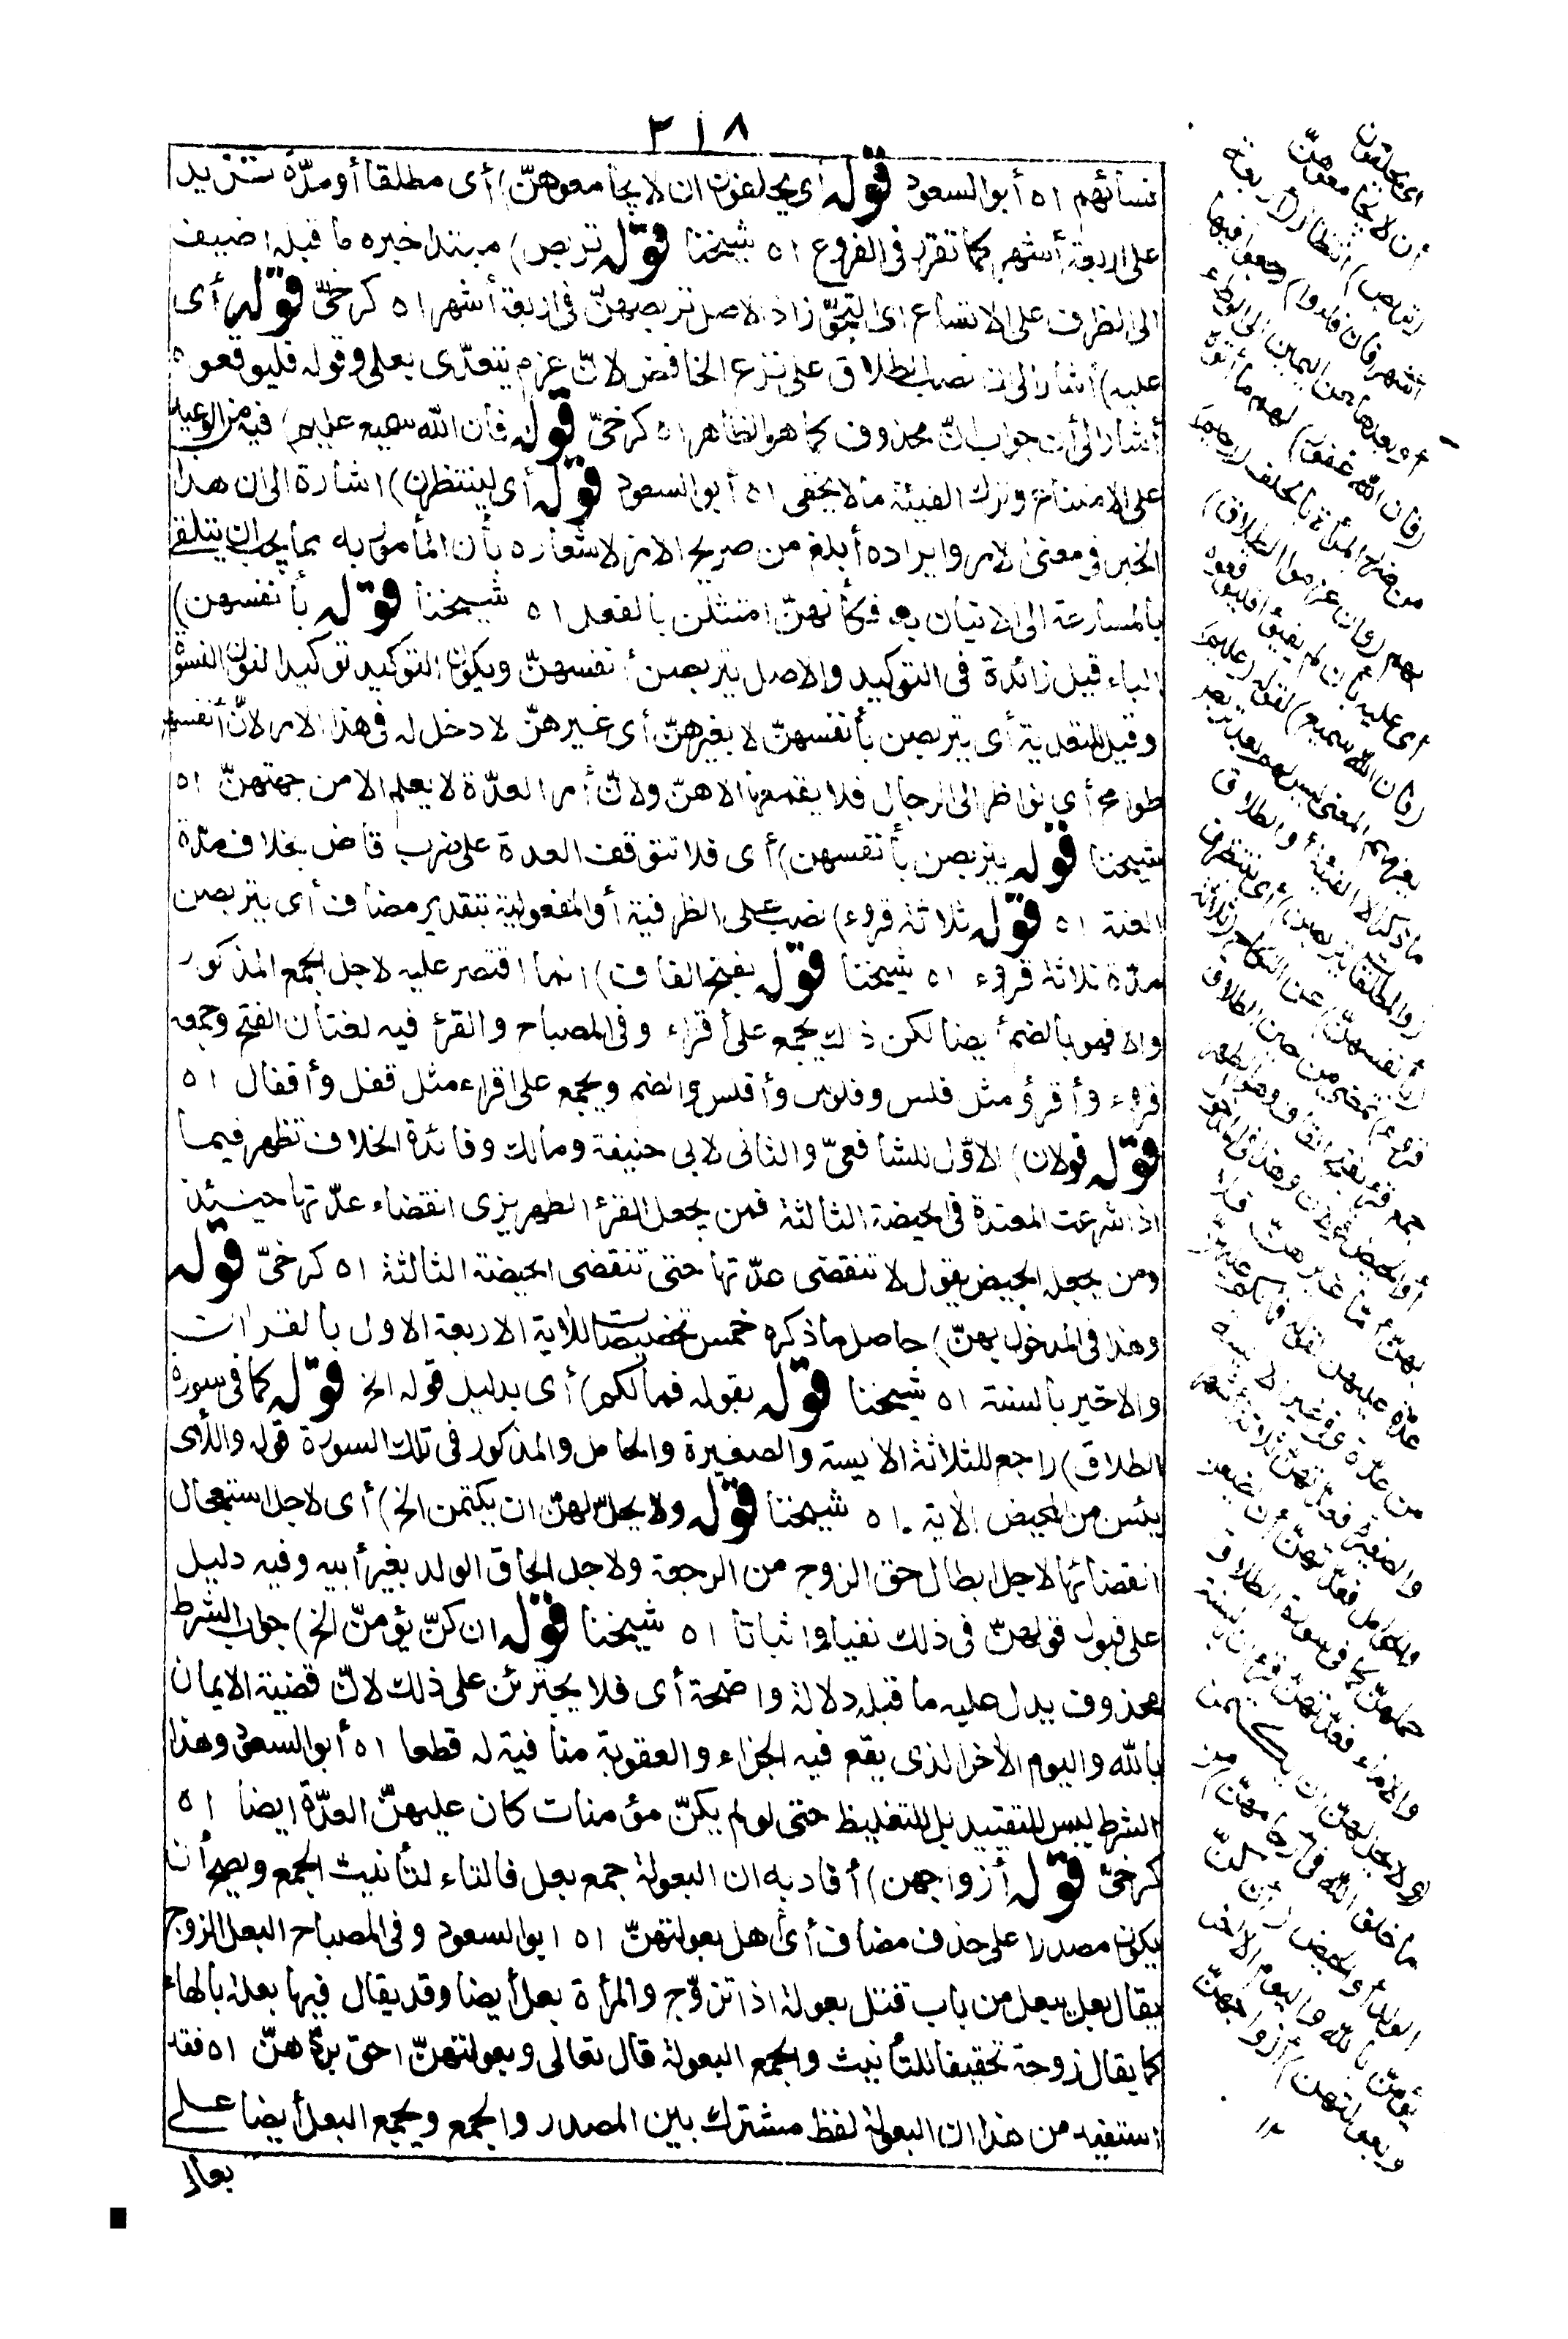 ٣١٨
نسائهم اه أبو السعود قوله أى يحلفون ان لا يجامعوهنّ) أى مطلقا أو مدّة تزيد
على أربعة أشهر كما تقرّر فى الفروع اه شيخنا قوله تربص) مبتدا خبره ما قبله اضيف
الى الظرف على الاتساع اى التجوّز اذ الاصل تربصهنّ فى اربعة أشهر اه كرخىّ قوله أى
عليه) أشار الى ان نصب الطلاق على نزع الخافض لانّ عزم يتعدّى بعلى وقوله فليوقعوه
أشار الى أن جواب انّ محذوف كما هو الظاهر اه كرخىّ قوله فان الله سميع عليم) فيه من الوعيد
على الامتناع وترك الفيئة ما لا يخفى اه أبو السعود قوله أى لينتظرن) اشارة الى ان هذا
الخبر فى معنى الامر وايراده أبلغ من صريح الامر لاشعاره بأن المأمور به مما يجب ان يتلقى
بالمسارعة الى الاتيان به فكأنهنّ امتثلن بالفعل اه شيخنا قوله بأنفسهن)
الباء قيل زائدة فى التوكيد والاصل يتربصن أنفسهنّ ويكون التوكيد توكيدا لنون النسوة
وقيل للتعدية أى يتربصن بأنفسهنّ لا بغيرهنّ أى غيرهنّ لا دخل له فى هذا الامر لانّ أنفسهن
طوامح أى نواظر الى الرجال فلا يقمعها الا هنّ ولانّ أمر العدّة لا يعلم الا من جهتهنّ اه
شيخنا قوله يتربصن بأنفسهن) أى فلا تتوقف العدة على ضرب قاض بخلاف مدّة
العنة اه قوله ثلاثة قروء) نصب على الظرفية أو المفعولية بتقدير مضاف أى يتربصن
مدّة ثلاثة قروء اه شيخنا قوله بفتح القاف) انما اقتصر عليه لاجل الجمع المذكور
والا فهو بالضم أيضا لكن ذاك يجمع على أقراء وفى المصباح والقرء فيه لغتان الفتح وجمعه
قروء وأقرؤ مثل فلس وفلوس وأفلس والضم ويجمع على اقراء مثل قفل وأقفال اه
قوله قولان) الاوّل للشافعىّ والثانى لابى حنيفة ومالك وفائدة الخلاف تظهر فيما
اذا شرعت المعتدة فى الحيضة الثالثة فمن يجعل القرء الطهر يرى انقضاء عدّتها حينئذ
ومن يجعله الحيض يقول لا تنقضى عدّتها حتى تنقضى الحيضة الثالثة اه كرخىّ قوله
وهذا فى المدخول بهنّ) حاصل ما ذكره خمس تخصيصات للآية الاربعة الاول بالقرآن
والاخير بالسنة اه شيخنا قوله بقوله فما لكم) أى بدليل قوله الخ قوله كما فى سورة
الطلاق) راجع للثلاثة الآيسة والصغيرة والحامل والمذكور فى تلك السورة قوله واللّٰائى
يئسن من المحيض الآية اه شيخنا قوله ولا يحلّ لهنّ ان يكتمن الخ) أى لاجل استعجال
انقضائها لاجل ابطال حق الزوج من الرجعة ولاجل الحاق الولد بغير أبيه وفيه دليل
على قبول قولهنّ فى ذلك نفيا واثباتا اه شيخنا قوله ان كنّ يؤمنّ الخ) جواب الشرط
محذوف يدل عليه ما قبله دلالة واضحة أى فلا يجترئن على ذلك لانّ قضية الايمان
بالله واليوم الآخر الذى يقع فيه الجزاء والعقوبة منافية له قطعا اه أبو السعود وهذا
الشرط ليس للتقييد بل للتغليظ حتى لو لم يكنّ مؤمنات كان عليهنّ العدّة ايضا اه
كرخىّ قوله أزواجهن) أفاد به ان البعولة جمع بعل فالتاء لتأنيث الجمع ويصح أن
يكون مصدرا على حذف مضاف أى أهل بعولتهنّ اه ابو السعود وفى المصباح البعل الزوج
يقال بعل يبعل من باب قتل بعولة اذا تزوّج والمرأة بعل أيضا وقد يقال فيها بعلة بالهاء
كما يقال زوجة تحقيقا للتأنيث والجمع البعولة قال تعالى وبعولتهنّ احق بردّهنّ اه فقد
استفيد من هذا ان البعولة لفظ مشترك بين المصدر والجمع ويجمع البعل أيضا على
بعال
اى يحلفون
أن لا يجامعوهنّ
(تربص) انتظار (أربعة
أشهر فان فاءوا) رجعوا فيها
أو بعدها عن اليمين الى الوطء
(فان الله غفور) لهم ما أتوه
من ضرر المرأة بالحلف (رحيم)
بهم (وان عزموا الطلاق)
أى عليه بأن لم يفيئوا فليوقعوه
(فان الله سميع) لقولهم (عليم)
بعزمهم المعنى ليس لهم بعد تربص
ما ذكر الا الفيئة أو الطلاق
(والمطلقات يتربصن) أى لينتظرن
(بأنفسهنّ) عن النكاح (ثلاثة
قروء) تمضى من حين الطلاق
جمع قرء بفتح القاف وهو الطهر
أو الحيض قولان وهذا فى المدخول
بهنّ أمّا غيرهنّ فلا
عدّة عليهن لقوله فما لكم عليهنّ
من عدّة وفى غير الآيسة
والصغيرة فعدّتهنّ ثلاثة أشهر
والحوامل فعدّتهنّ أن يضعن
حملهنّ كما فى سورة الطلاق
والاماء فعدّتهنّ قرءان بالسنة
(ولا يحل لهنّ ان يكتمن
ما خلق الله فى أرحامهنّ) من
الولد أو الحيض (ان كنّ
يؤمنّ بالله واليوم الآخر
وبعولتهن) أزواجهنّ